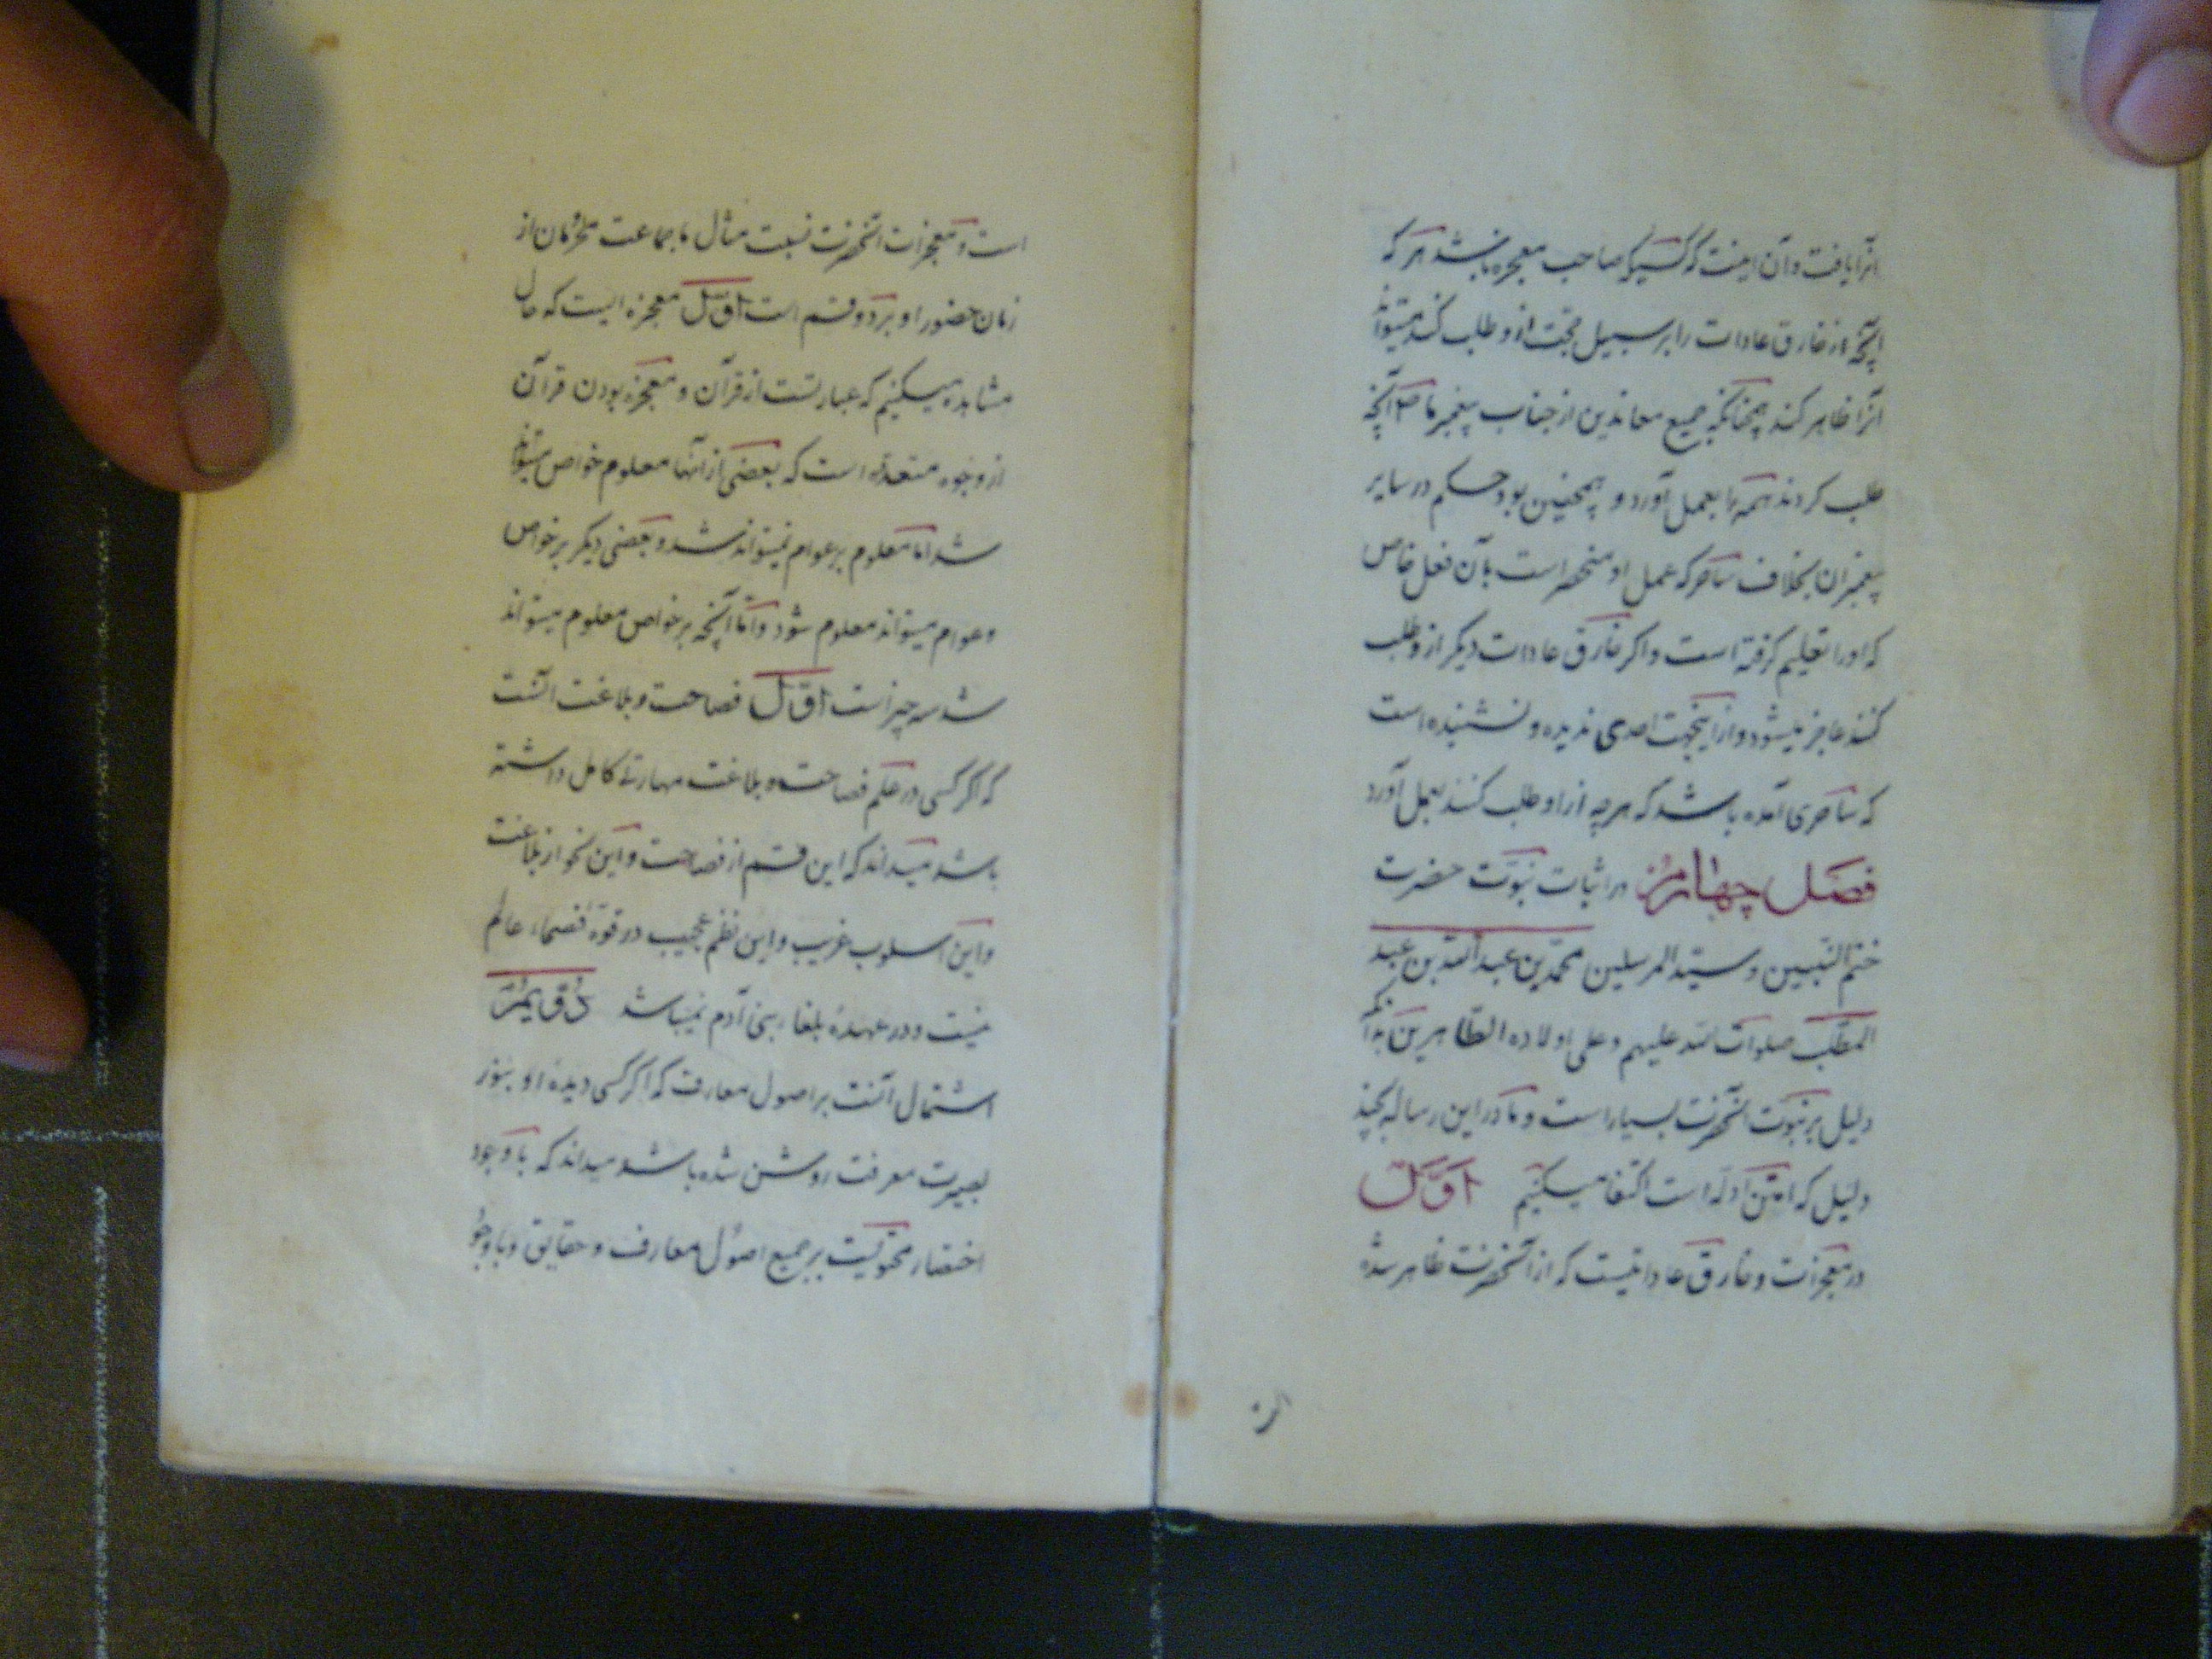 آنرا یافت و آن اینست که کسیکه صاحب معجزه باشد هر که
آنچه از خارق عادات را بر سبیل حجّت ازو طلب کند میتواند
آنرا ظاهر کند چنانکه جمیع معاندین از جناب پیغمبر ما ص آنچه
طلب کردند همه را بعمل آورد و همچنین بود حکم در سایر
پیغمبران بخلاف ساحر که عمل او منحصر است بآن فعل خاص
که او را تعلیم گرفته است و اگر خارق عادات دیگر ازو طلب
کنند عاجز میشود و از اینجهت احدی ندیده و نشنیده است
که ساحری آمده باشد که هر چه از او طلب کنند بعمل آورد
فصل چهارم در اثبات نبوّت حضرت
ختم النّبیین و سیّد المرسلین محمّد بن عبد اللّه بن عبد
المطّلب صلوات اللّه علیهم و علی اولاده الطّاهرین بدانکه
دلیل بر نبوّت آنحضرت بسیار است و ما در این رساله بچند
دلیل که امتن ادلّه است اکتفا میکنیم اوّل
در معجزات و خارق عاداتیست که از آنحضرت ظاهر شده
است و معجزات آنحضرت نسبت مثال ما جماعت محرومان از
زمان حضور او بر دو قسم است اوّل معجزه ایست که حال
مشاهده میکنیم که عبارتست از قرآن و معجزه بودن قرآن
از وجوه متعدّده است که بعضی از آنها معلوم خواص میتواند
شد امّا معلوم بر عوام نمیتواند شد و بعضی دیگر بر خواص
و عوام میتواند معلوم شود و امّا آنچه بر خواص معلوم میتواند
شد سه چیز است اوّل فصاحت و بلاغت آنست
که اگر کسی در علم فصاحت و بلاغت مهارتی کامل داشته
باشد میداند که این قسم از فصاحت و این نحو از بلاغت
و این اسلوب غریب و این نظم عجیب در قوّه فصحاء عالم
نیست و در عهدهٔ بلغاء بنی آدم نمیباشد دویم
اشتمال آنست بر اصول معارف که اگر کسی دیدهٔ او بنور
بصیرت معرفت روشن شده باشد میداند که با وجود
اختصار محتویست بر جمیع اصول معارف و حقایق و با وجود